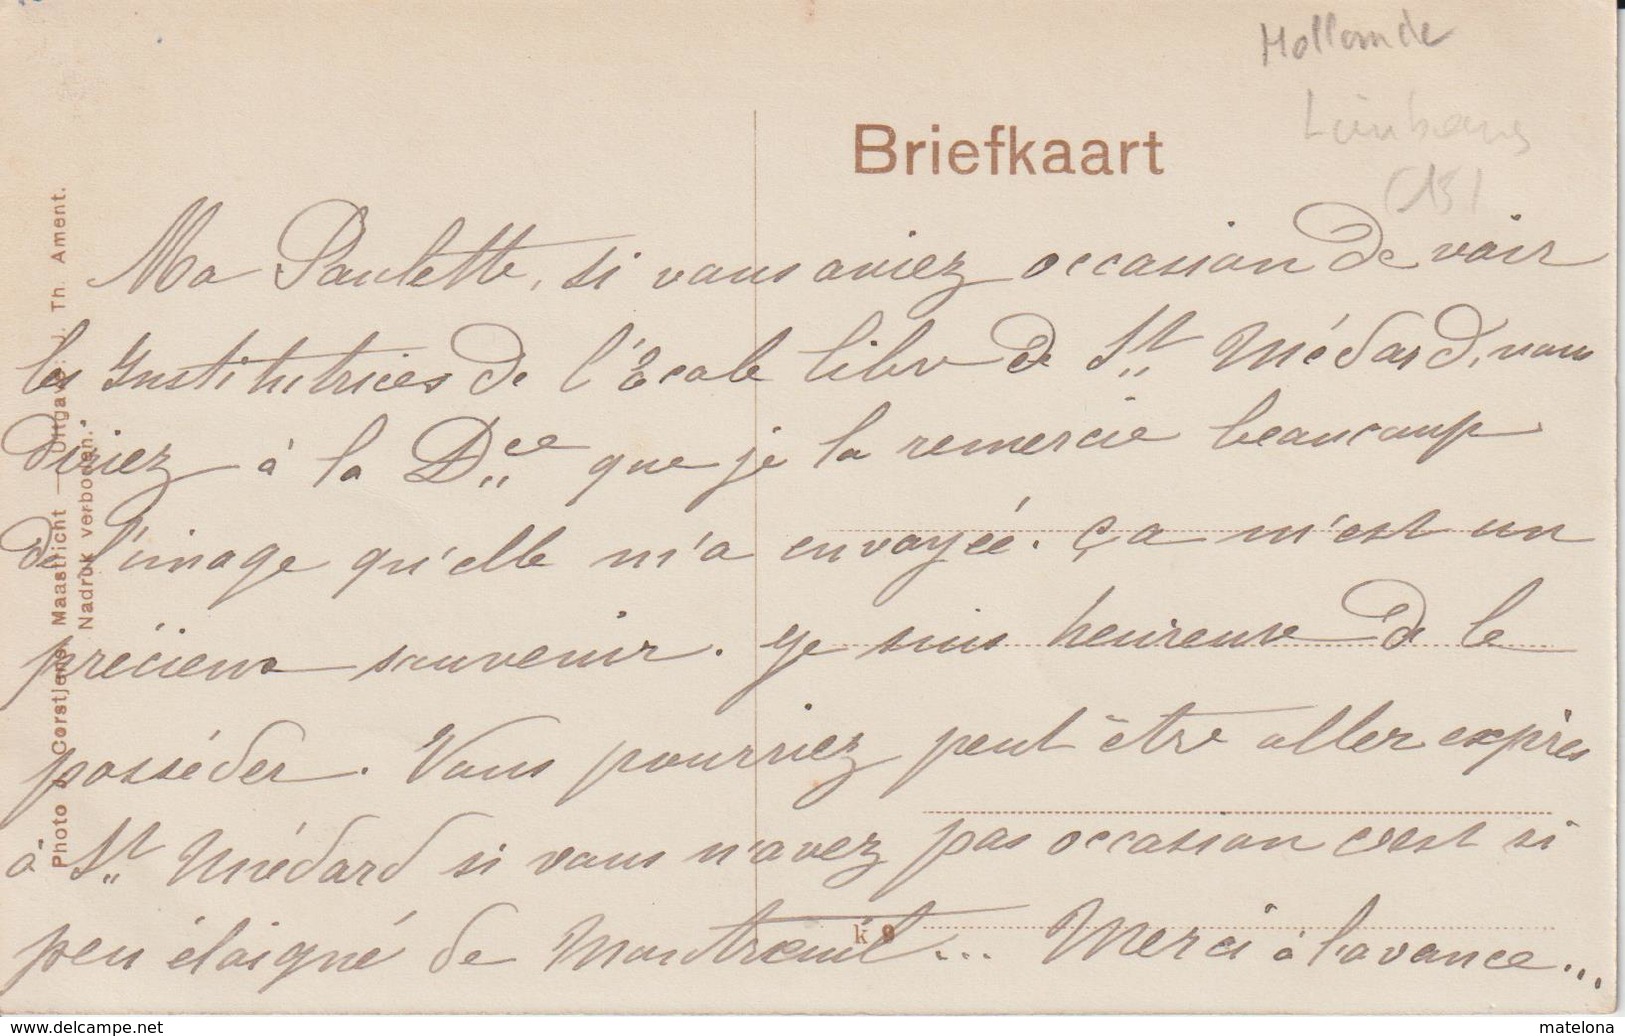 Hollande
Limbourg
Briefkaart
Ma Paulette, si vous aviez occasion de voir
les Institutrices de l'Ecole libre de St Médard, vous
diriez à la Dce que je la remercie beaucoup
de l'image qu'elle m'a envoyée. Ça m'est un
précieux souvenir. Je suis heureuse de le
posséder. Vous pourriez peut être aller exprès
à St Médard si vous n'avez pas occasion c'est si
peu éloigné de Montreuil... Merci à l'avance...
k 9
Photo b Corstjens, Maastricht — Uitgave: J. Th. Ament.
Nadruk verboden.
www.delcampe.net
matelona